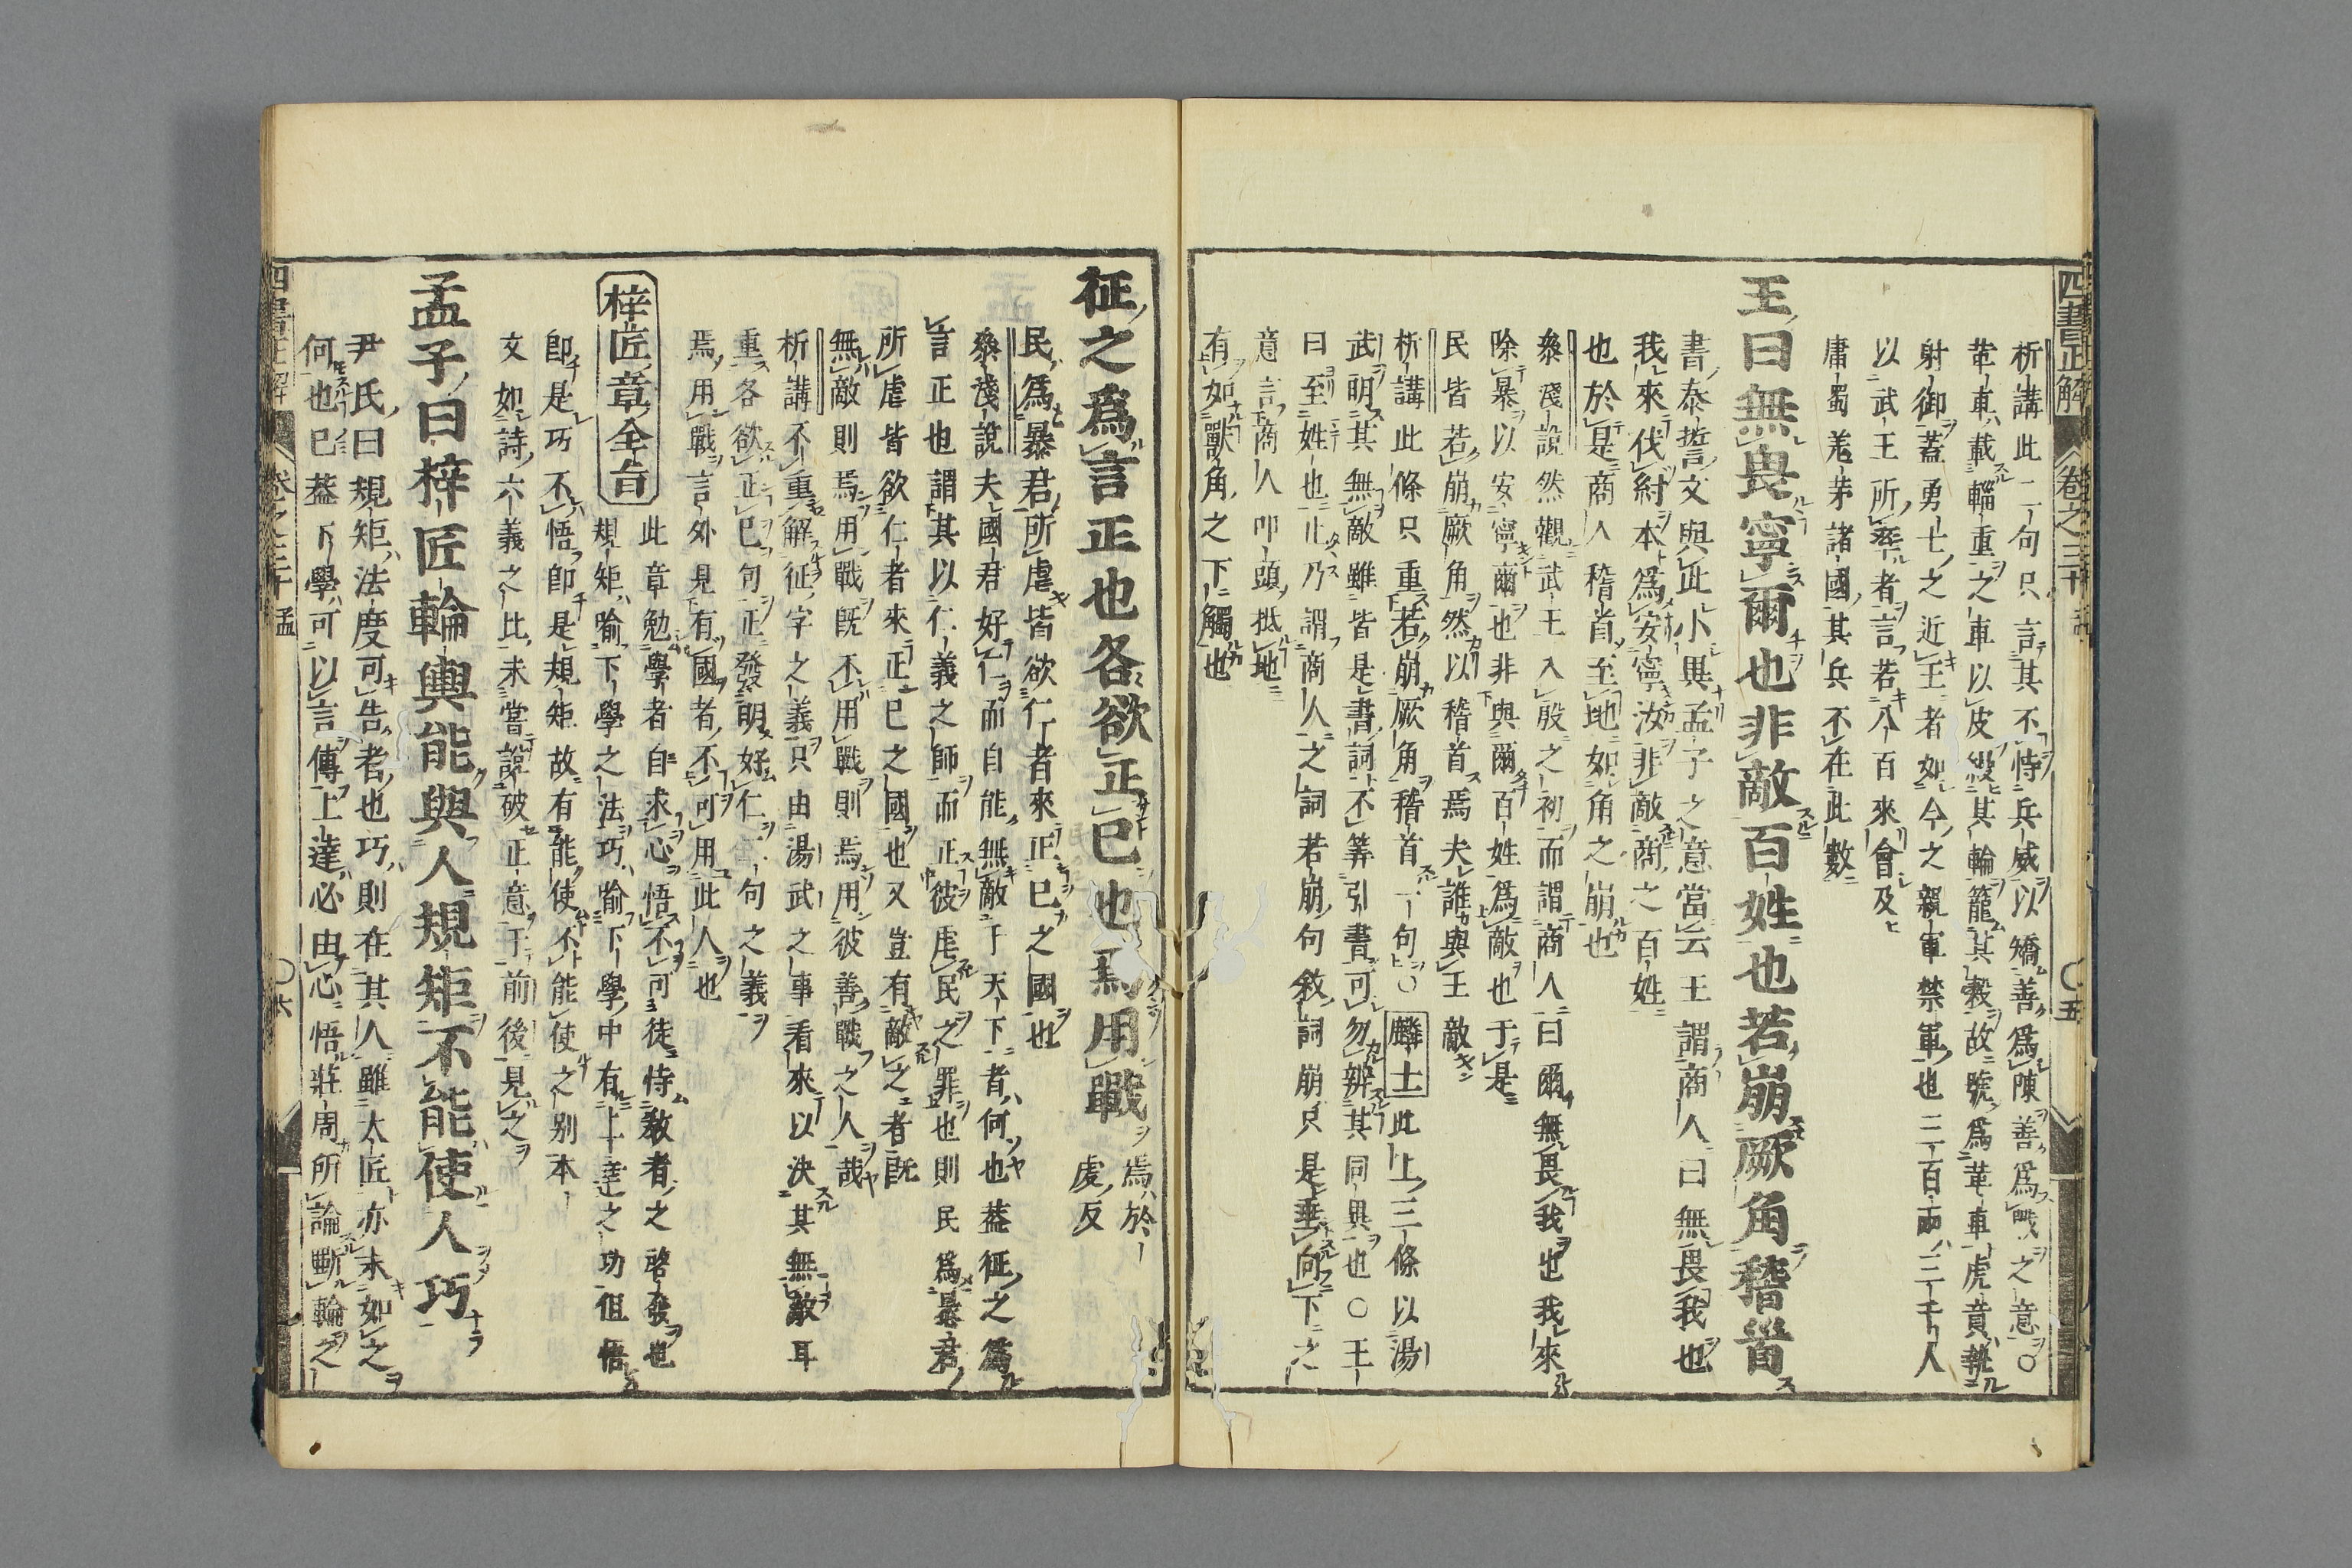 四書正解 卷之三十 孟 〇五
析講此二句只言其不恃兵威以矯善爲陳善爲戰之意〇
革車載輜重之車以皮縵其輪籠其轂故號爲革車虎賁執
射御蓋勇士之近王者如今之親軍禁軍也三百兩三千人
以武王所率者言若八百來會及
庸蜀羗茅諸國其兵不在此數
王曰無畏寧爾也非敵百姓也若崩厥角稽首
書泰誓文與此小異孟子之意當云王謂商人曰無畏我也
我來伐紂本爲安寧汝非敵商之百姓
也於是商人稽首至地如角之崩也
叅淺說然觀武王入殷之初而謂商人曰爾無畏我也我來
除暴以安寧爾也非與爾百姓爲敵也于是
民皆若崩厥角然以稽首焉夫誰與王敵
析講此條只重若崩厥角稽首一句〇麟士此上三條以湯
武明其無敵雖皆是書詞不筭引書可勿辨其同異也〇王
曰至姓也止乃謂商人之詞若崩句敘詞崩只是垂向下之
意言商人叩頭抵地
有如獸角之下觸也
征之爲言正也各欲正已也焉用戰焉於虔反
民爲暴君所虐皆欲仁者來正已之國也
叅淺說夫國君好仁而自能無敵于天下者何也葢征之爲
言正也謂其以仁義之師而正彼虐民之罪也則民爲暴君
所虐皆欲仁者來正已之國也又豈有敵之者旣
無敵則焉用戰旣不用戰則焉用彼善戰之人哉
析講不重解征字之義只由湯武之事看來以決其無敵耳
重各欲正已句正發明好仁二句之義
焉用戰言外見有國者不可用此人也
梓匠章全旨 此章勉學者自求心悟不可徒恃敎者之啓發也
規矩喻下學之法巧喻下學中有上達之功但悟
卽是巧不悟卽是規矩故有能使不能使之别本
文如詩六義之比未嘗說破正意于前後見之
孟子曰梓匠輪輿能與人規矩不能使人巧
尹氏曰規矩法度可告者也巧則在其人雖大匠亦末如之
何也已葢下學可以言傳上達必由心悟莊周所論斲輪之
四書正解 卷之三十 孟 〇六